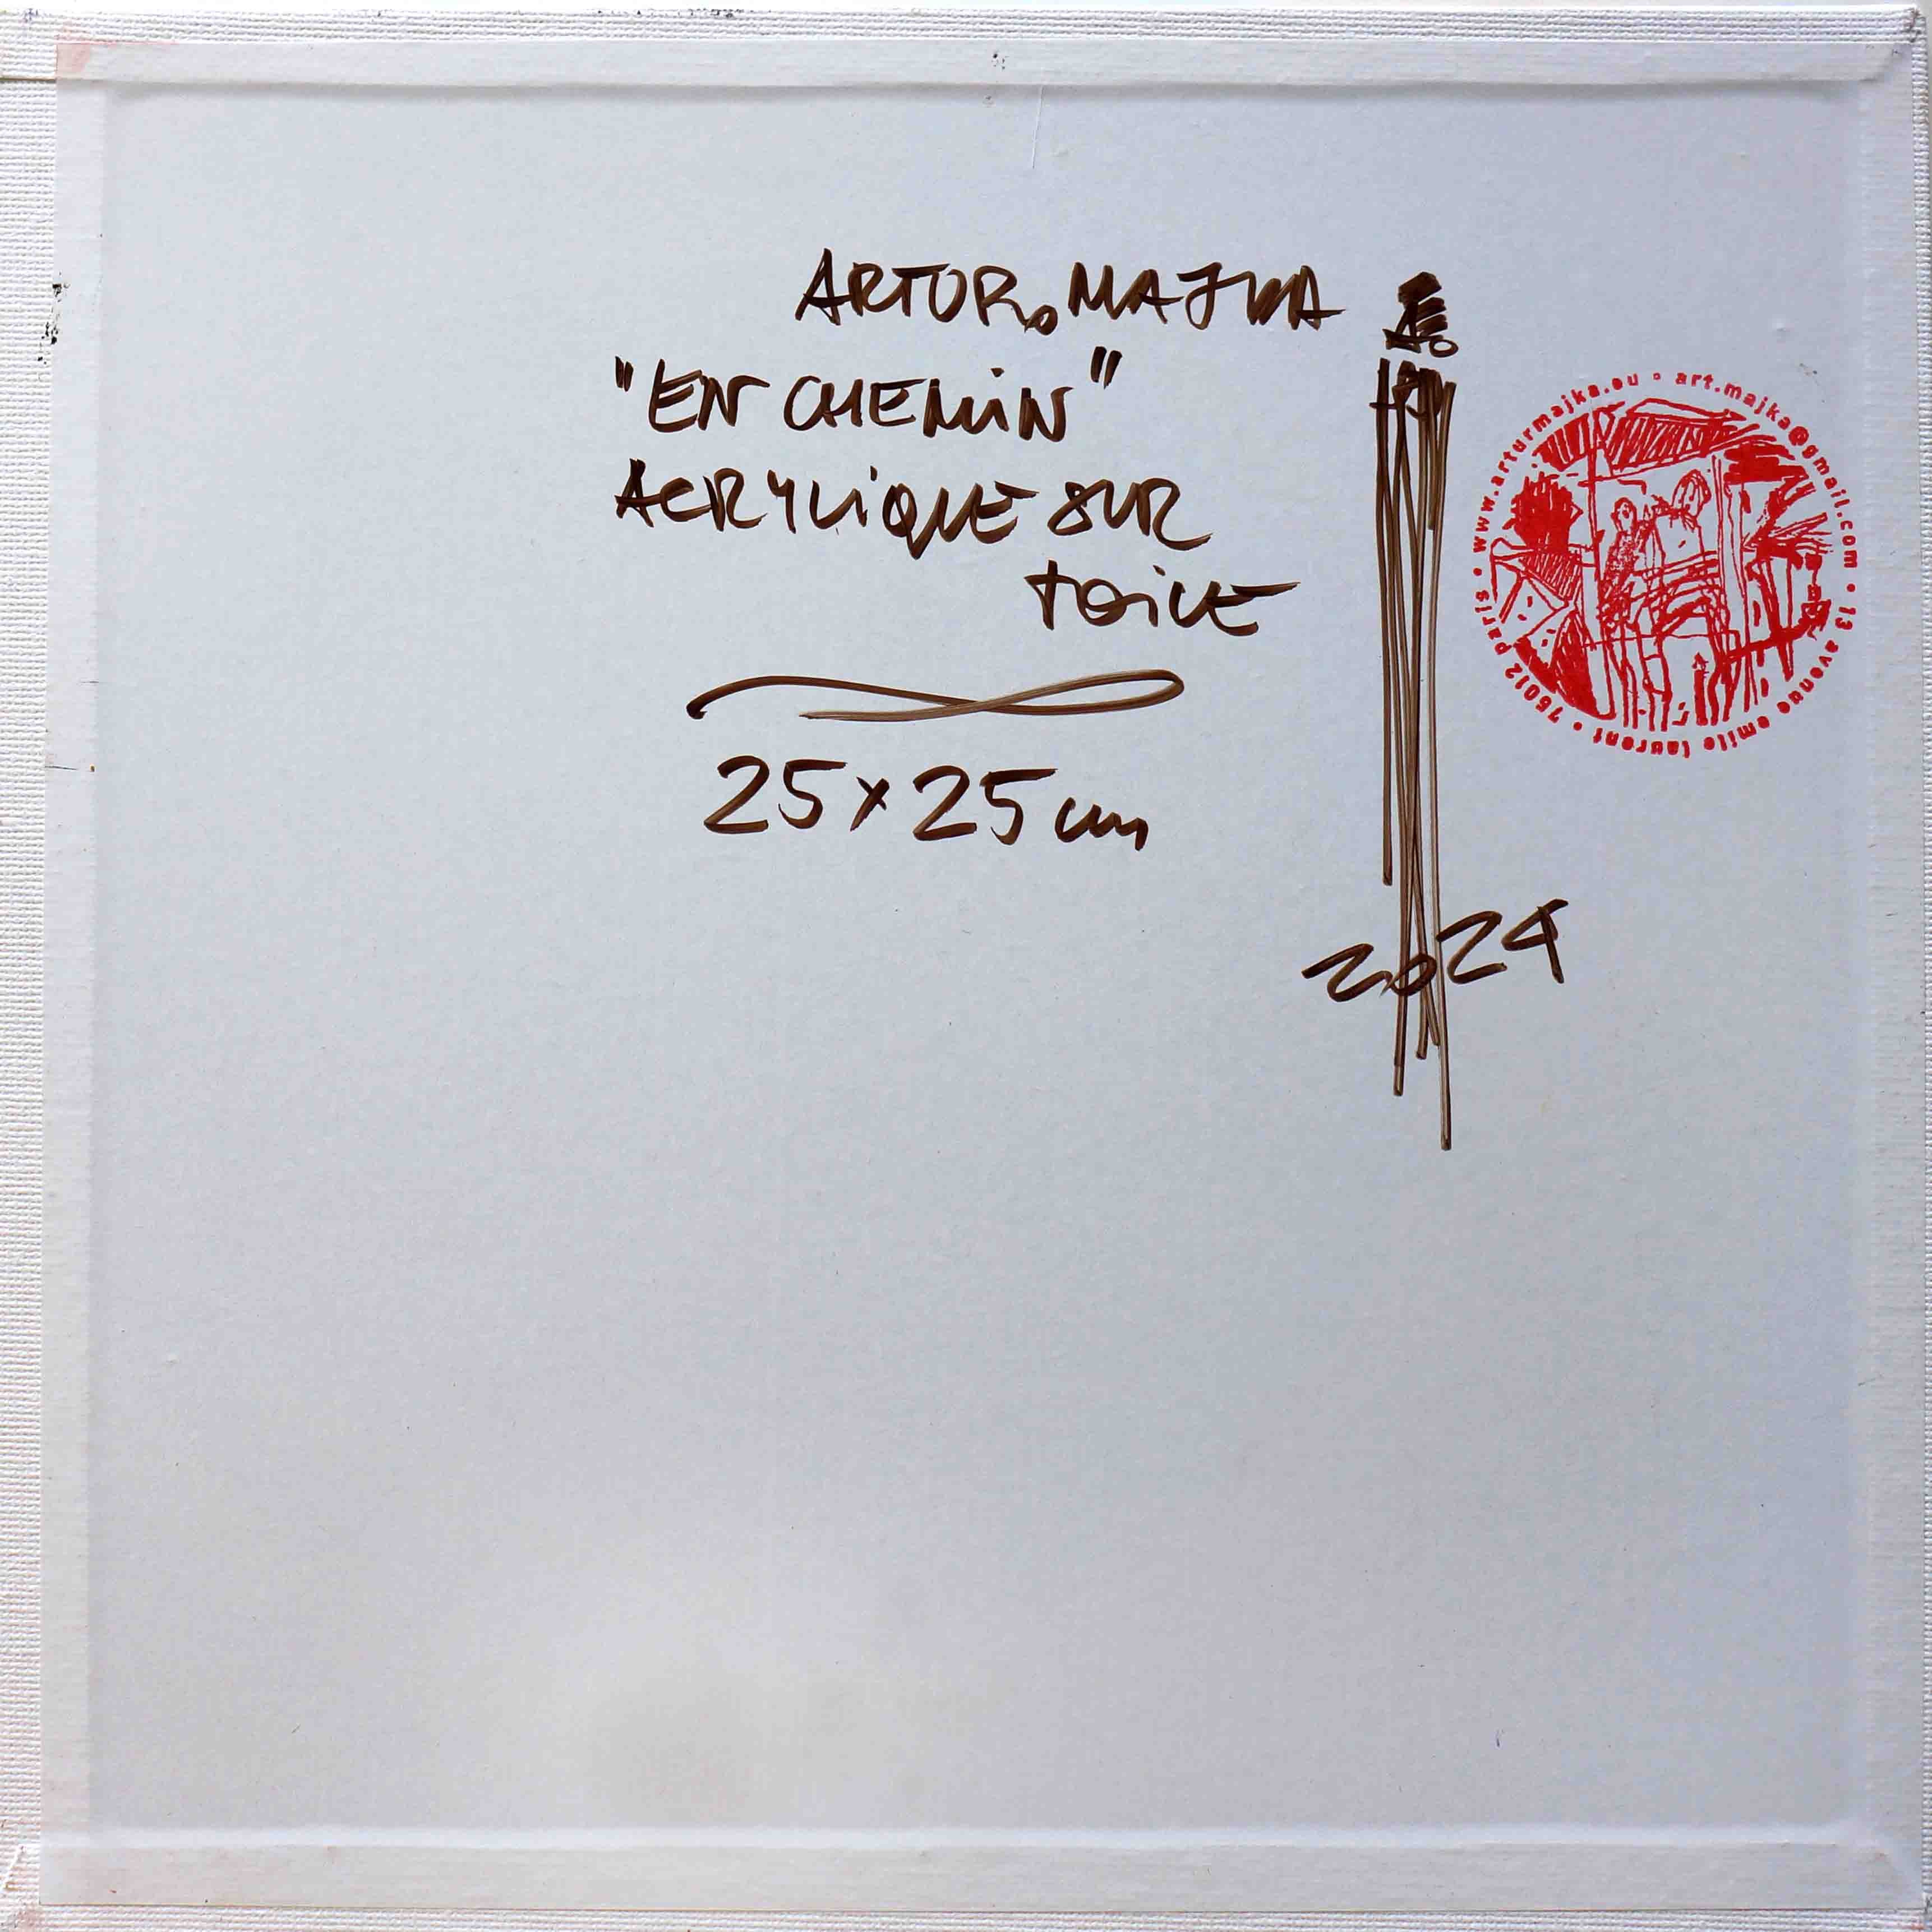 ARTUR. MAJKA
"EN CHEMIN"
ACRYLIQUE SUR
TOILE
25x25 cm
2024
www.arturmajka.eu • art.majka@gmail.com • 13 avenue emile laurent • 75012 paris •